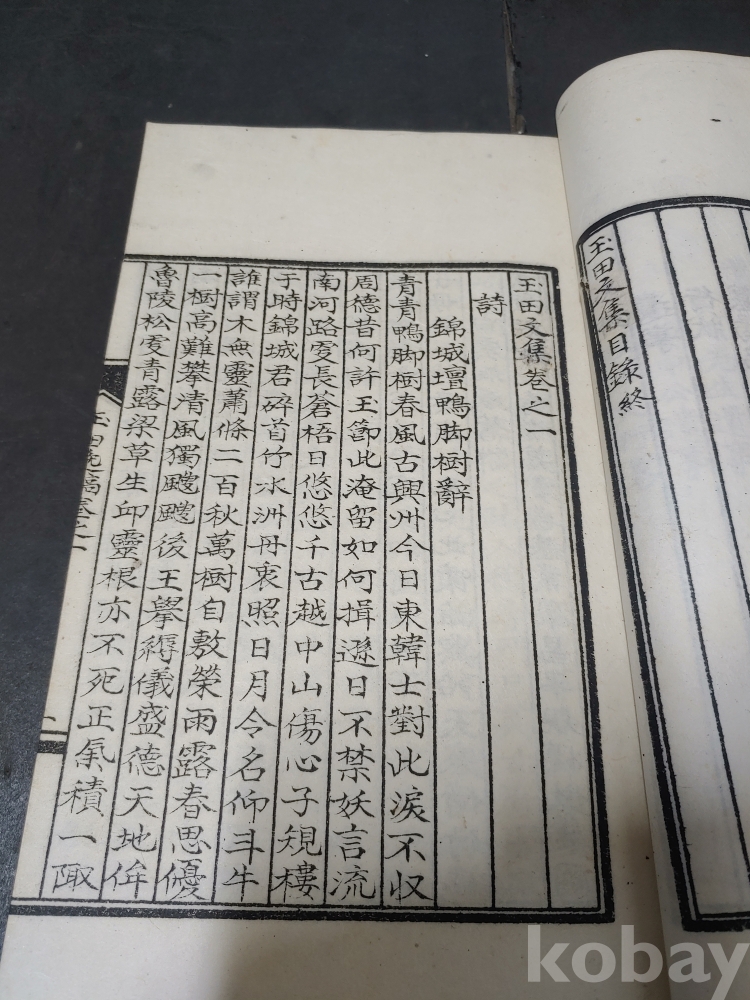 玉田文集目錄終
玉田文集卷之一
詩
錦城壇鴨脚樹辭
青青鴨脚樹春風古興州今日東韓士對此淚不収
周德昔何許玉節此淹留如何揖遜日不禁妖言流
南河路雯長蒼梧日悠悠千古越中山傷心子規樓
于時錦城君碎首竹水洲丹衷照日月令名仰斗牛
誰謂木無靈蕭條二百秋萬樹自敷榮雨露春思優
一樹高難攀清風獨颼颼後王擧縟儀盛德天地侔
魯陵松雯青露梁草生邱靈根亦不死正氣積一陬
kobay